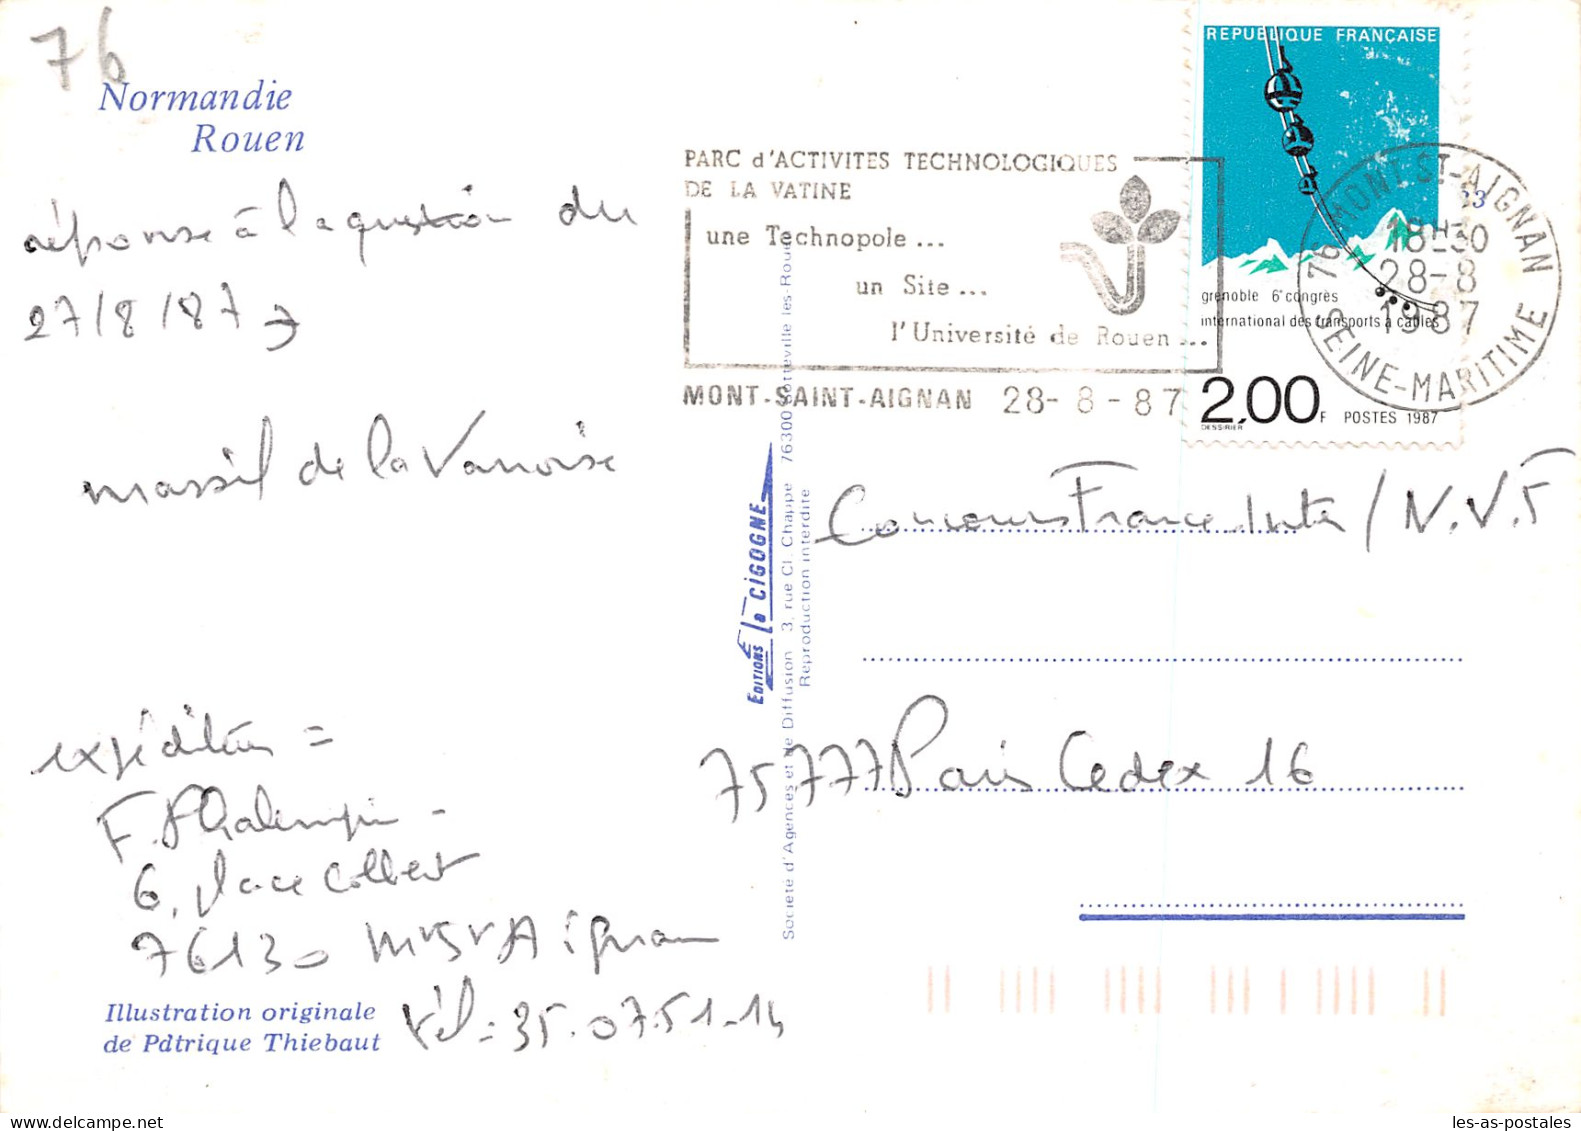 76
Normandie
Rouen
réponse à la question du
27/8/87 →
massif de la Vanoise
expéditeur =
F.
6, place Colbert
76130 Mt St Aignan
tél = 35.07.51.14
Illustration originale
de Patrique Thiebaut
PARC d'ACTIVITES TECHNOLOGIQUES
DE LA VATINE
une Technopole ...
un Site ...
l'Université de Rouen ...
MONT-SAINT-AIGNAN 28-8-87
REPUBLIQUE FRANÇAISE
grenoble 6e congrès
international des transports à cables
2,00F POSTES 1987
DESSIRIER
76 MONT ST-AIGNAN
18H30
28-8
1987
SEINE-MARITIME
EDITIONS La CIGOGNE
Société d'Agences et de Diffusion 3, rue Cl. Chappe 76300 Sotteville-les-Rouen
Reproduction interdite
Concours France Inter / N.V.F
75777 Paris Cedex 16
les-as-postales